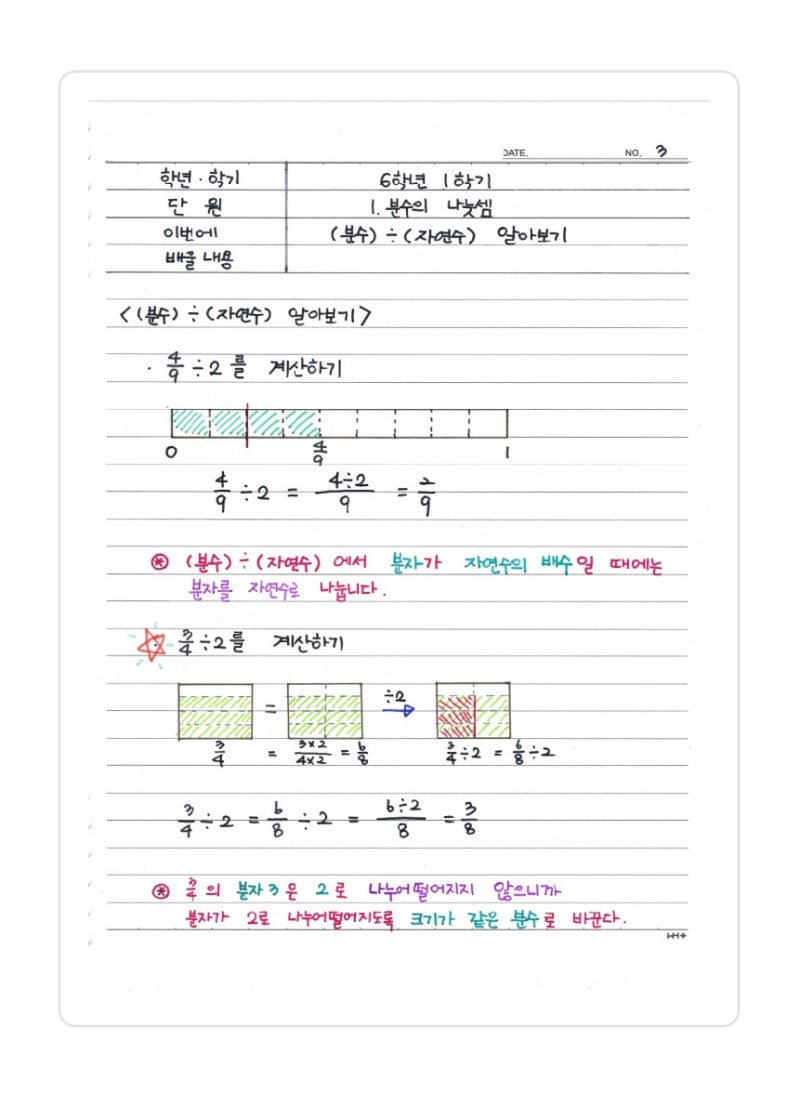 DATE. NO. 3
학년·학기 6학년 1학기
단 원 1. 분수의 나눗셈
이번에 (분수)÷(자연수) 알아보기
배울 내용
<(분수)÷(자연수) 알아보기>
· 4/9 ÷2를 계산하기
0 4/9 1
4/9 ÷2 = 4÷2/9 = 2/9
⊛ (분수)÷(자연수)에서 분자가 자연수의 배수일 때에는
분자를 자연수로 나눕니다.
☆ 3/4 ÷2를 계산하기
= ÷2 →
3/4 = 3×2/4×2 = 6/8 3/4 ÷2 = 6/8 ÷2
3/4 ÷2 = 6/8 ÷2 = 6÷2/8 = 3/8
⊛ 3/4의 분자 3은 2로 나누어떨어지지 않으니까
분자가 2로 나누어떨어지도록 크기가 같은 분수로 바꾼다.